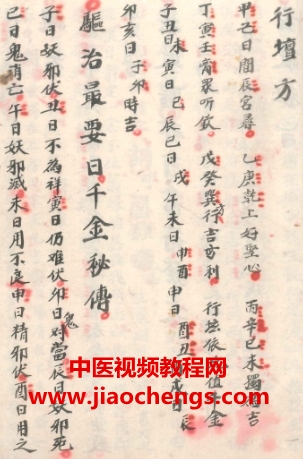 行壇方
甲己日闗辰宮尋 乙庚乾上好坚心 丙辛巳未獨稱吉
丁寅壬宵眾听欽 戊癸巽行吉方利 行坛依值千金
子丑日未寅日 巳辰巳日戌 午未日申酉申日酉丑戌日辰
卯亥日子卯時吉
驅治最要日千金秘傳
子日妖邪伏丑日不為祥寅日仍难伏卯日鬼对當辰日妖邪死
巳日鬼消亡午日妖邪滅未日用不良申日精邪伏酉日用之
中医视频教程网
www.jiaochengs.com